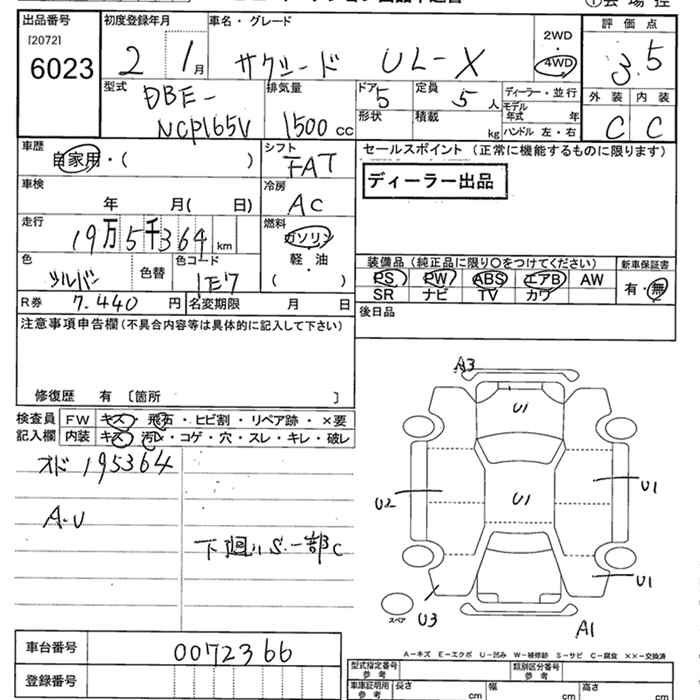 出品番号 初度登録年月 車名・グレード 2WD 評価点
[2072] ・
6023 2 1月 サクシード UL-X 4WD 3.5
型式 排気量 ドア 定員 ディーラー・並行 外装 内装
DBE- 5 5人 モデル年式 年
NCP165V 1500cc 形状 積載 kg ハンドル 左・右 C C
車歴 シフト セールスポイント (正常に機能するものに限ります)
自家用・( ) FAT ディーラー出品
車検 冷房
年 月( 日) AC
走行 燃料
19万5千364km ガソリン
色 色替 色コード 軽・油 装備品(純正品に限り〇をつけてください) 新車保証書
シルバー 1E7 ( ) PS PW ABS エアB AW 有・無
R券 7.440円 名変期限 月 日 SR ナビ TV カワ
注意事項申告欄(不具合内容等は具体的に記入して下さい) 後日品
修復歴 有 〔箇所 〕
検査員 FW キズ・飛石・ヒビ割・リペア跡・×要
記入欄 内装 キズ・汚レ・コゲ・穴・スレ・キレ・破レ
オド 195364
A.U
下廻リS.一部C
A3
U1
U2 U1 U1
U1
U3
スペア A1
A-キズ E-エクボ U-凹み W-補修跡 S-サビ C-腐食 ××-交換済
車台番号 0072366 型式指定番号 参考 類別区分番号 参考
登録番号 車庫証明用 参考 長さ cm 幅 cm 高さ cm